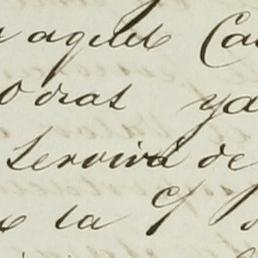 aquel Ca
odras ya
Servirá de
la c/